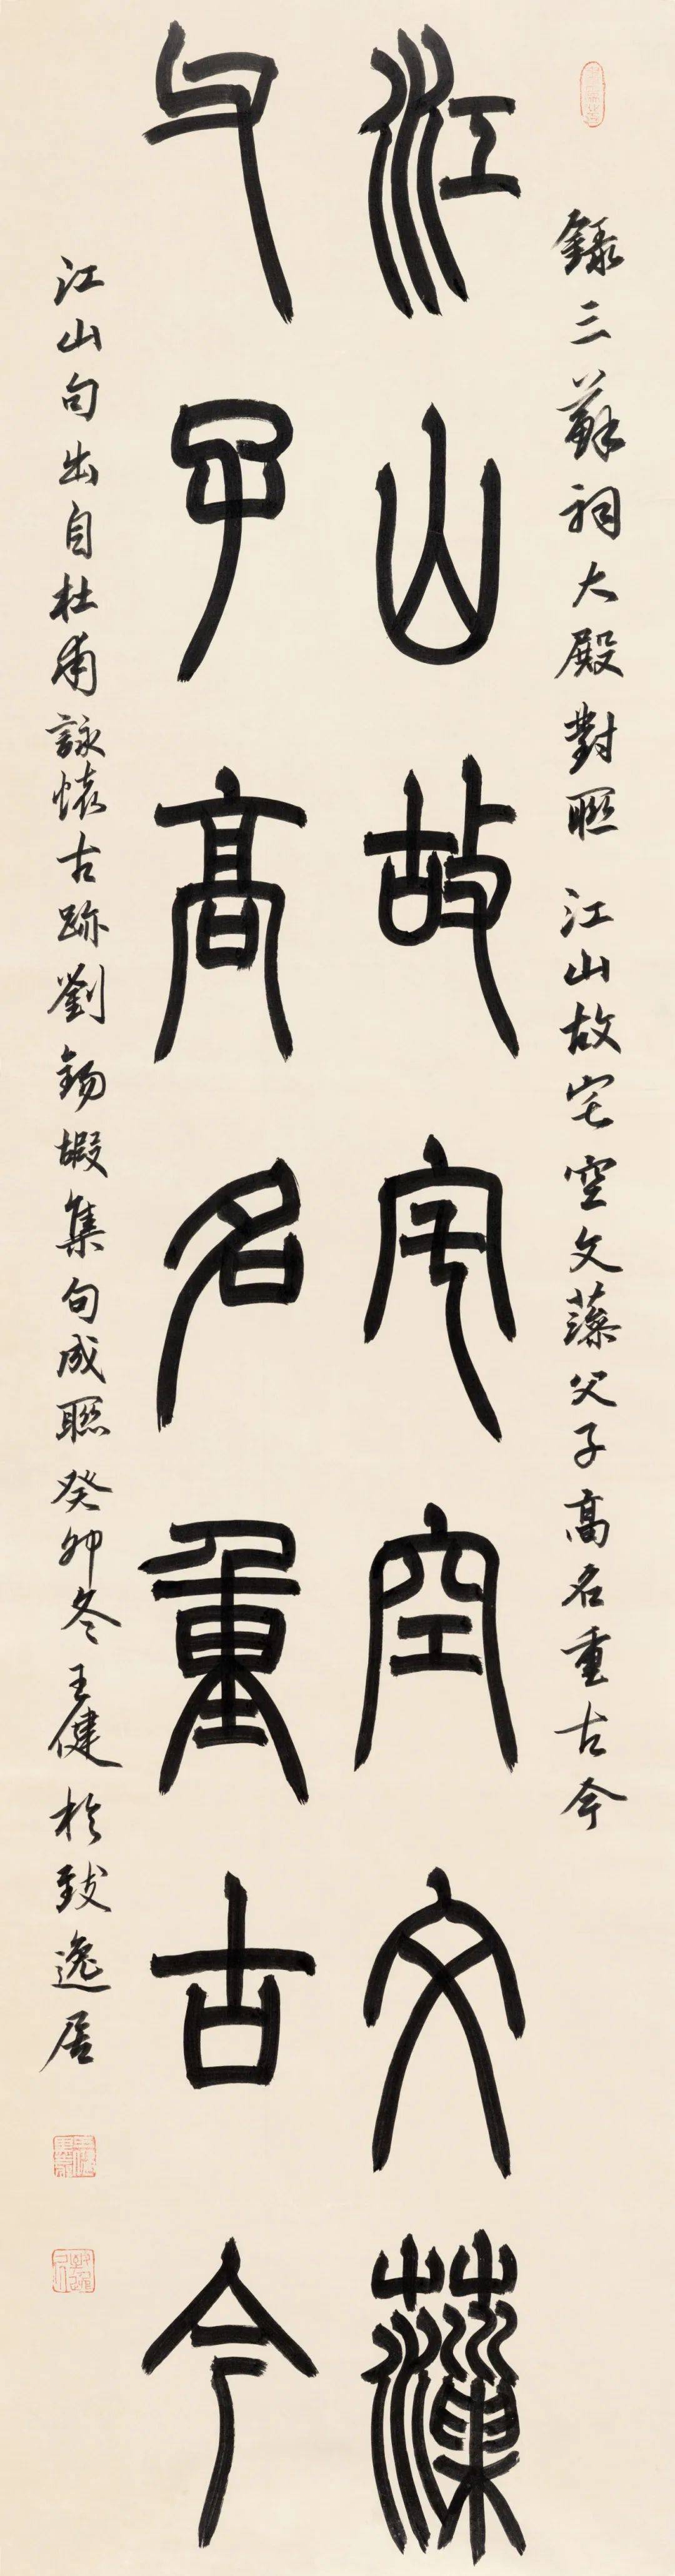 錄三蘇祠大殿對聯 江山故宅空文藻父子高名重古今
江山故宅空文藻
父子高名重古今
江山句出自杜甫詠懷古跡劉錫嘏集句成聯癸卯冬王健於致逸居